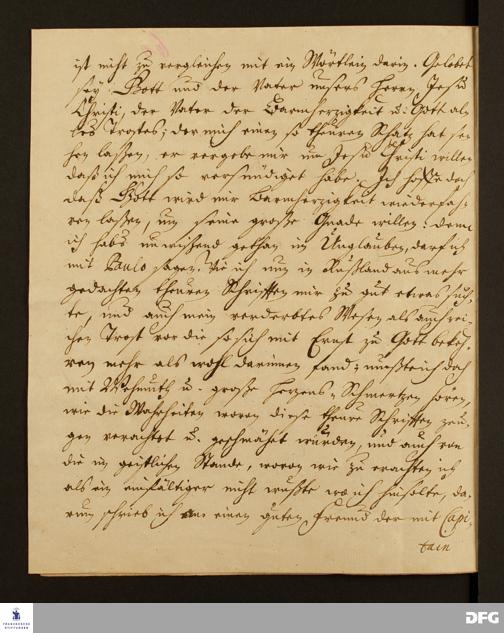 ist nicht zu vergleichen mit ein Wörtlein darin. Gelobet
sey Gott und der Vater unsers Herrn Jesu
Christi, der Vater der Barmherzigkeit u. Gott al-
les Trostes; der mich einen so theuren Schatz hat se-
hen lassen, er vergebe mir um Jesu Christi willen
daß ich mich so versündiget habe. Ich hoffe doch
daß Gott wird mir Barmherzigkeit wiederfah-
ren lassen, um seine große Gnade willen: denn
ich habs unwissend gethan im Unglauben, darf ich
mit Paulo sagen. Wie ich nun in Rußland aus mehr
gedachten theuren Schrifften mir zu gut etwas such-
te, und auch mein verderbtes Wesen als auch rei-
chen Trost vor die so sich mit Ernst zu Gott bekeh-
ren mehr als wohl darinnen fand; mußte ich doch
mit Wehmuth u. große Herzens-Schmertzen hören,
wie die Wahrheiten wovon diese theure Schrifften zeu-
gen verachtet u. geschmähet wurden, und auch von
die im geistlichen Stande, wovon wie zu erachten ich
als ein einfältiger nicht wußte wo ich hinsolte, da-
rum schrieb ich an einen guten Freund der mit Capi-
tain
FRANCKESCHE STIFTUNGEN
DFG